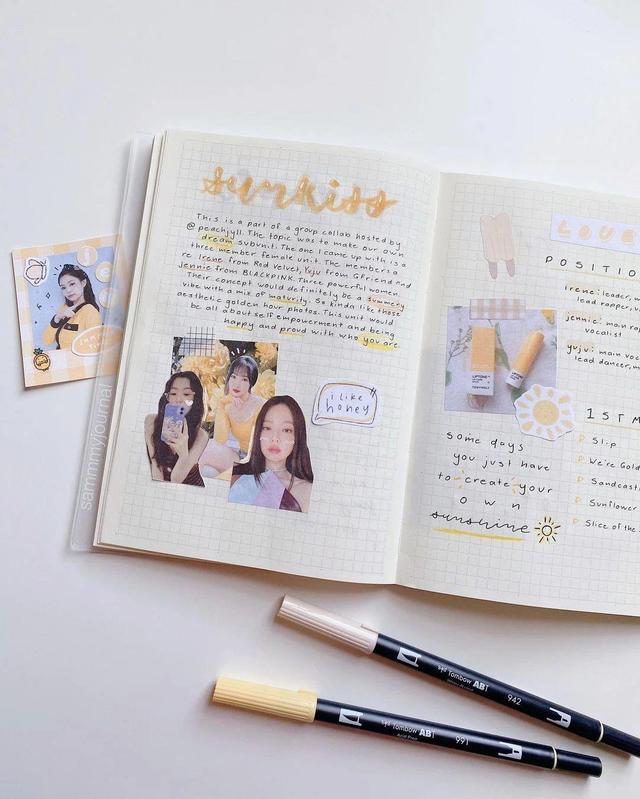 sunkiss
This is a part of a group collab hosted by
@peachjyll. The topic was to make our own
dream subunit. The one I came up with is a
three member female unit. The members a
re Irene from Red Velvet, Yuju from GFriend and
Jennie from BLACKPINK. Three powerful women.
Their concept would definitely be a summery
vibe with a mix of maturity. So kinda like those
aesthetic golden hour photos. This unit would
be all about self empowerment and being
happy and proud with who you are.
i like
honey
LOVE
POSITIO
irene: leader,
lead rapper, vi
jennie: main ra
vocalist
yuju: main voc
lead dancer, m
LIPTONE
LIPTONE
some days
you just have
to create your
own
sunshine
1ST M
Slip
We're Gold
Sandcast
Sunflower
Slice of the
sammmyjournal
Tombow ABT
942
Tombow ABT
991